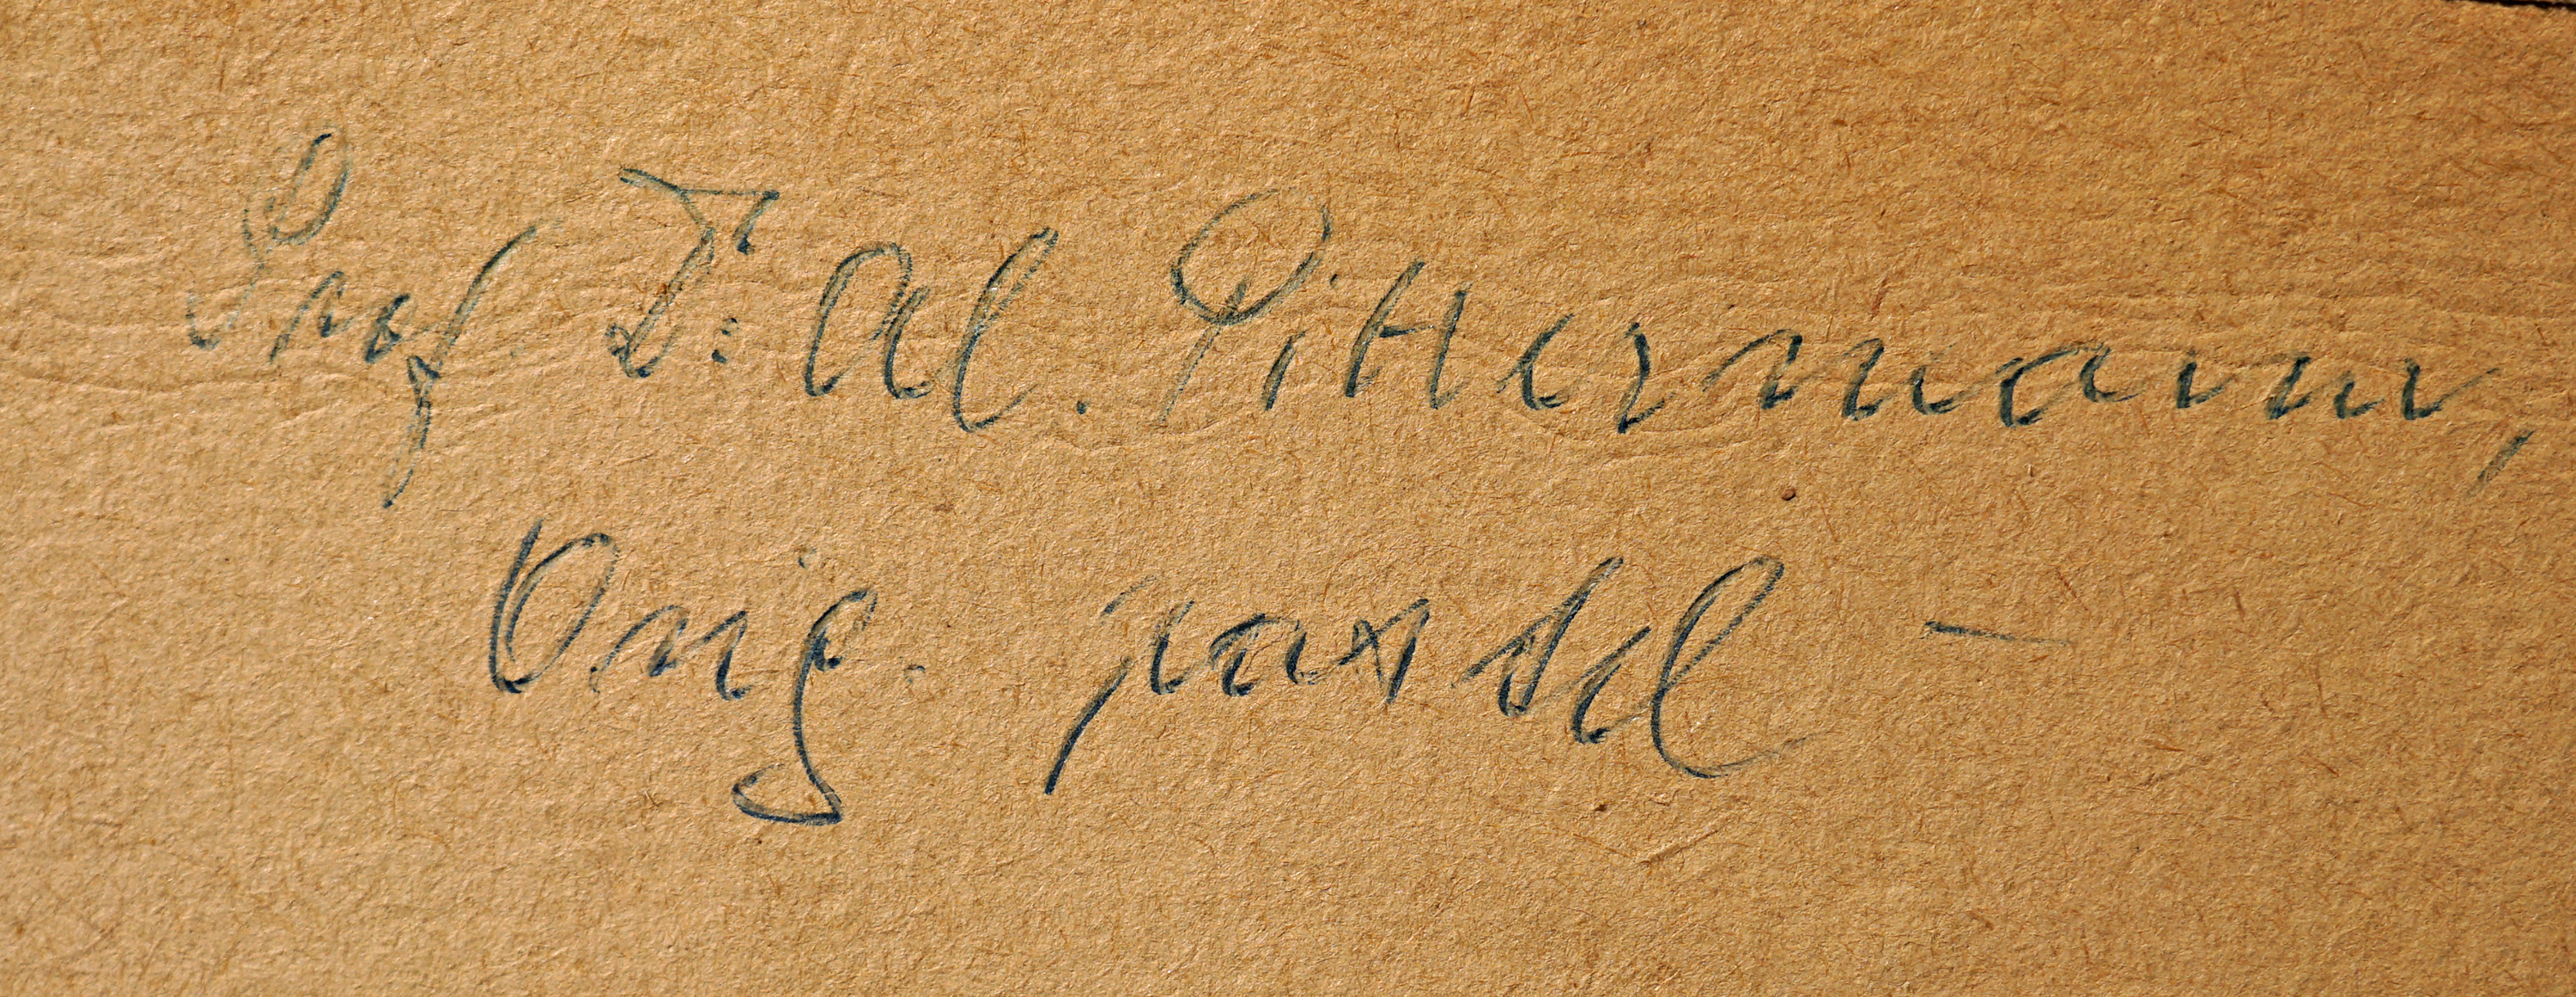 Prof Dr: Al. Pittermann,
Orig. pastel —